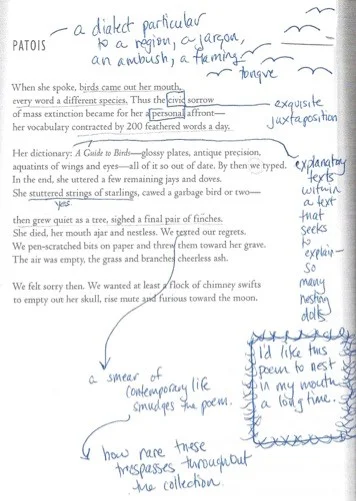 PATOIS
– a dialect particular
to a region, a jargon,
an ambush, a flaming
tongue
When she spoke, birds came out her mouth,
every word a different species. Thus the civic sorrow
of mass extinction became for her a personal affront—
her vocabulary contracted by 200 feathered words a day.
exquisite
juxtaposition
Her dictionary: A Guide to Birds—glossy plates, antique precision,
aquatints of wings and eyes—all of it so out of date. By then we typed.
In the end, she uttered a few remaining jays and doves.
She stuttered strings of starlings, cawed a garbage bird or two—
yes.
explanatory
texts
within
a text
that
seeks
to
explain–
so
many
nesting
dolls
then grew quiet as a tree, sighed a final pair of finches.
She died, her mouth ajar and nestless. We texted our regrets.
We pen-scratched bits on paper and threw them toward her grave.
The air was empty, the grass and branches cheerless ash.
We felt sorry then. We wanted at least a flock of chimney swifts
to empty out her skull, rise mute and furious toward the moon.
I'd like this
poem to nest
in my mouth
a long time.
a smear of
contemporary life
smudges the poem.
how rare these
trespasses throughout
the collection.